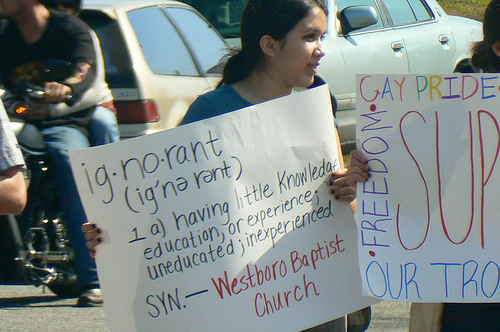 ig·no·rant
(ig'nə rənt)
1 a) having little knowledge
education, or experience;
uneducated; inexperienced
SYN.— Westboro Baptist
Church
GAY PRIDE
FREEDOM
SUP
OUR TRO